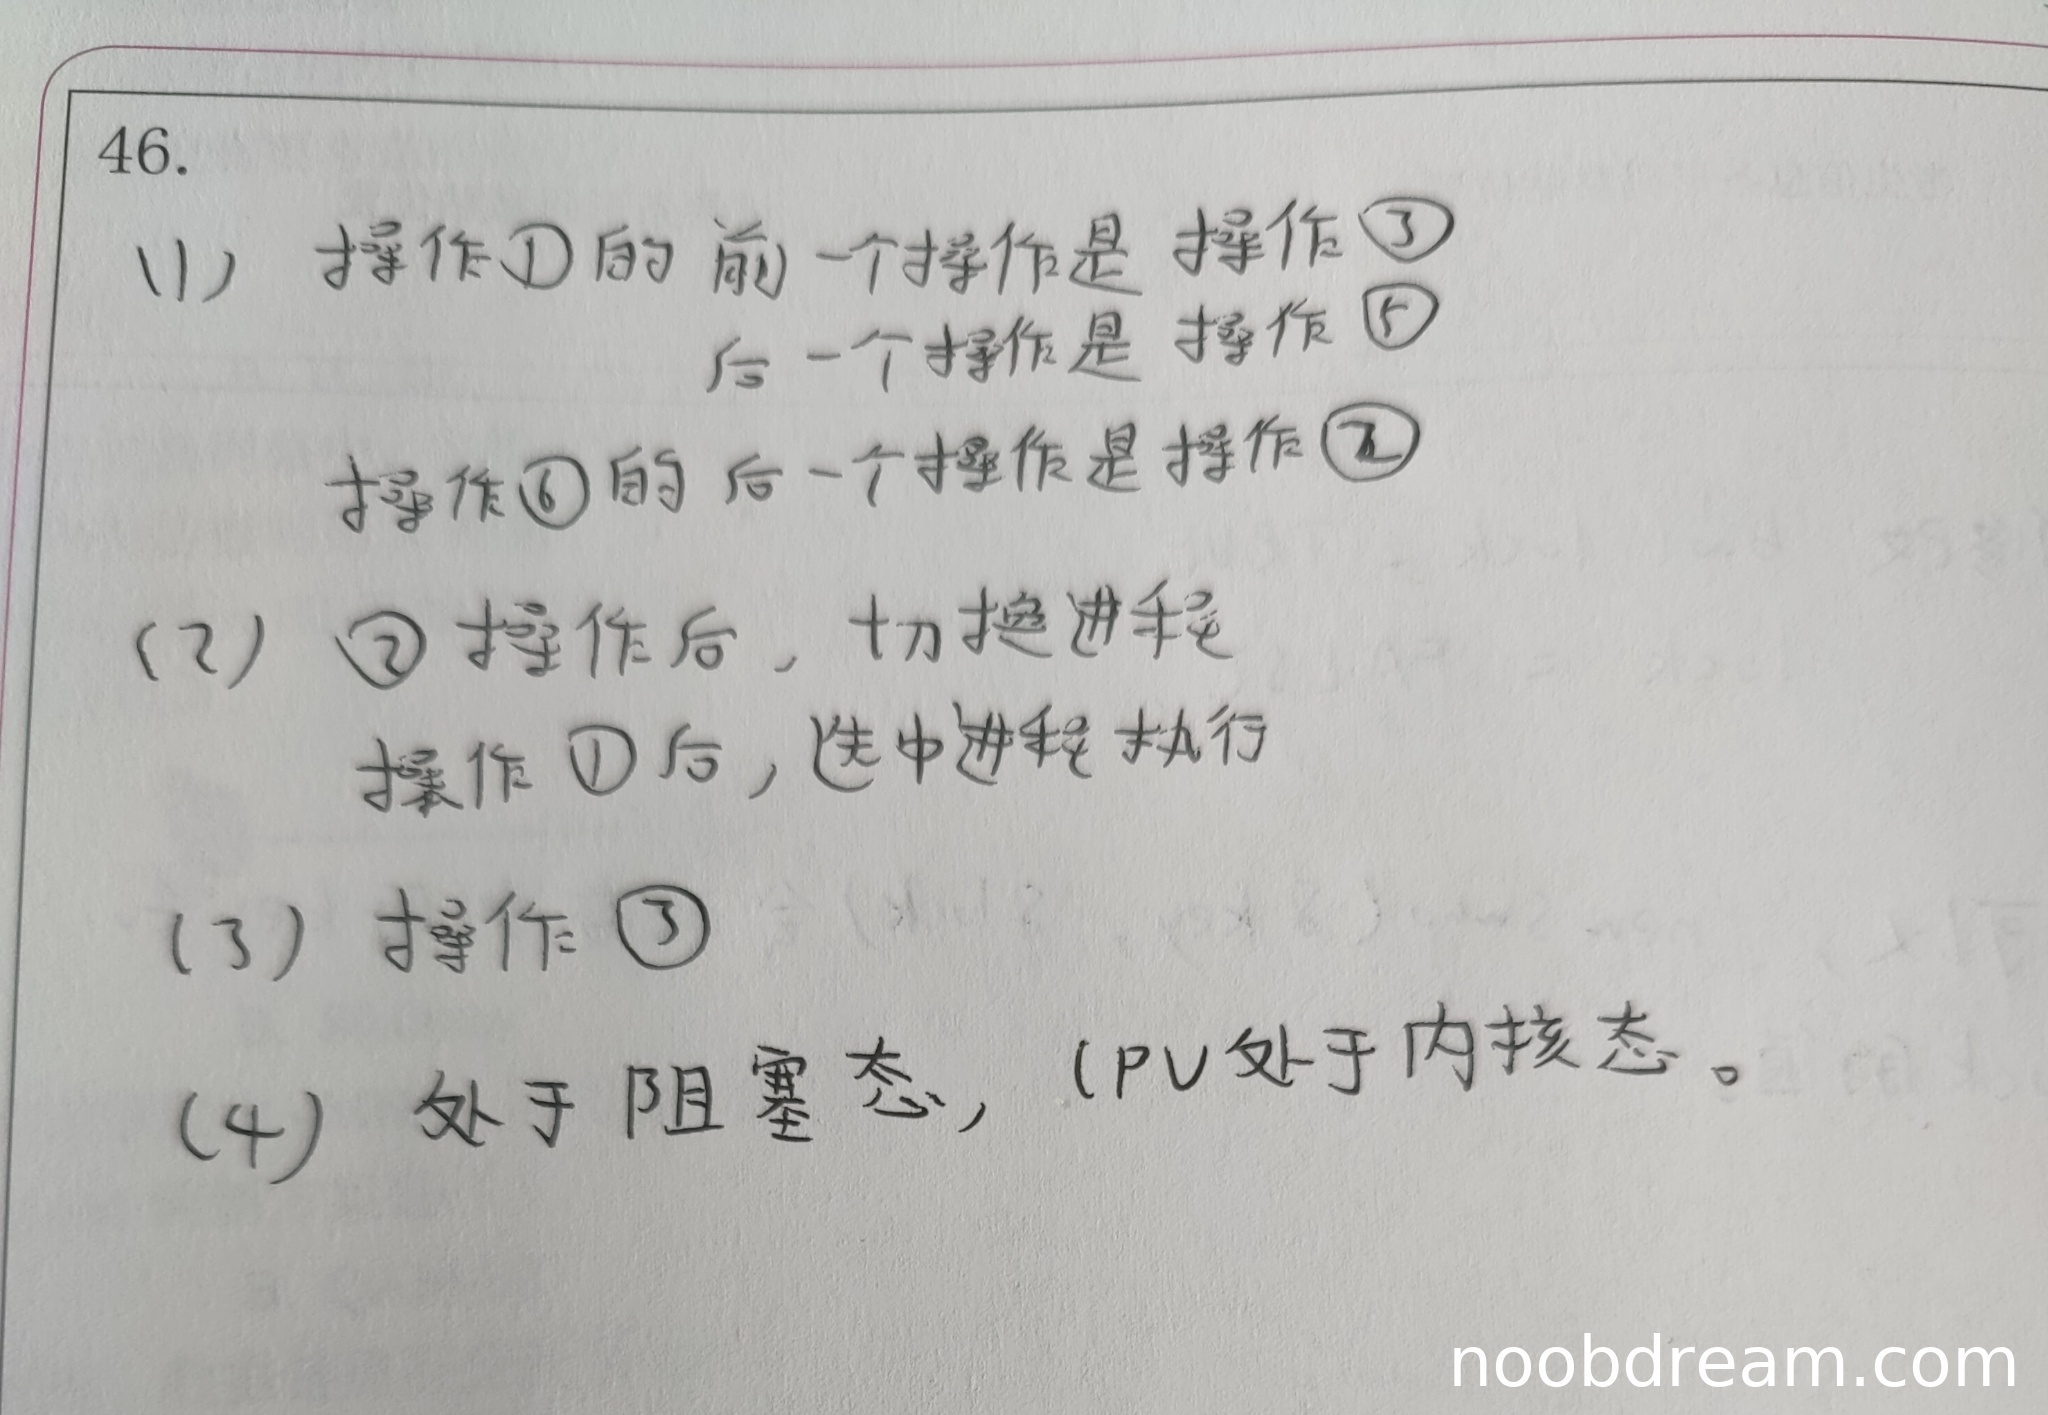 46.
(1) 操作①的前一个操作是 操作③
后一个操作是 操作⑤
操作⑥的后一个操作是操作②
(2) ②操作后，切换进程
操作①后，选中进程执行
(3) 操作③
(4) 处于阻塞态，CPU处于内核态。
noobdream.com